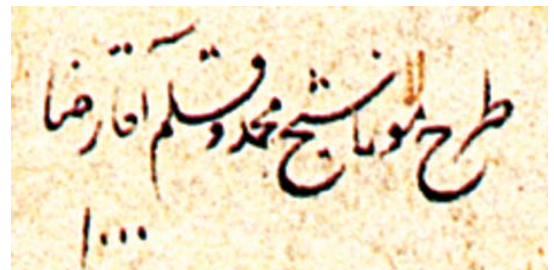 طرح مولانا شیخ محمد و قلم آقا رضا
۱۰۰۰